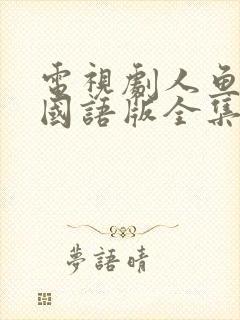 電視劇人魚
國語版全集
夢語晴